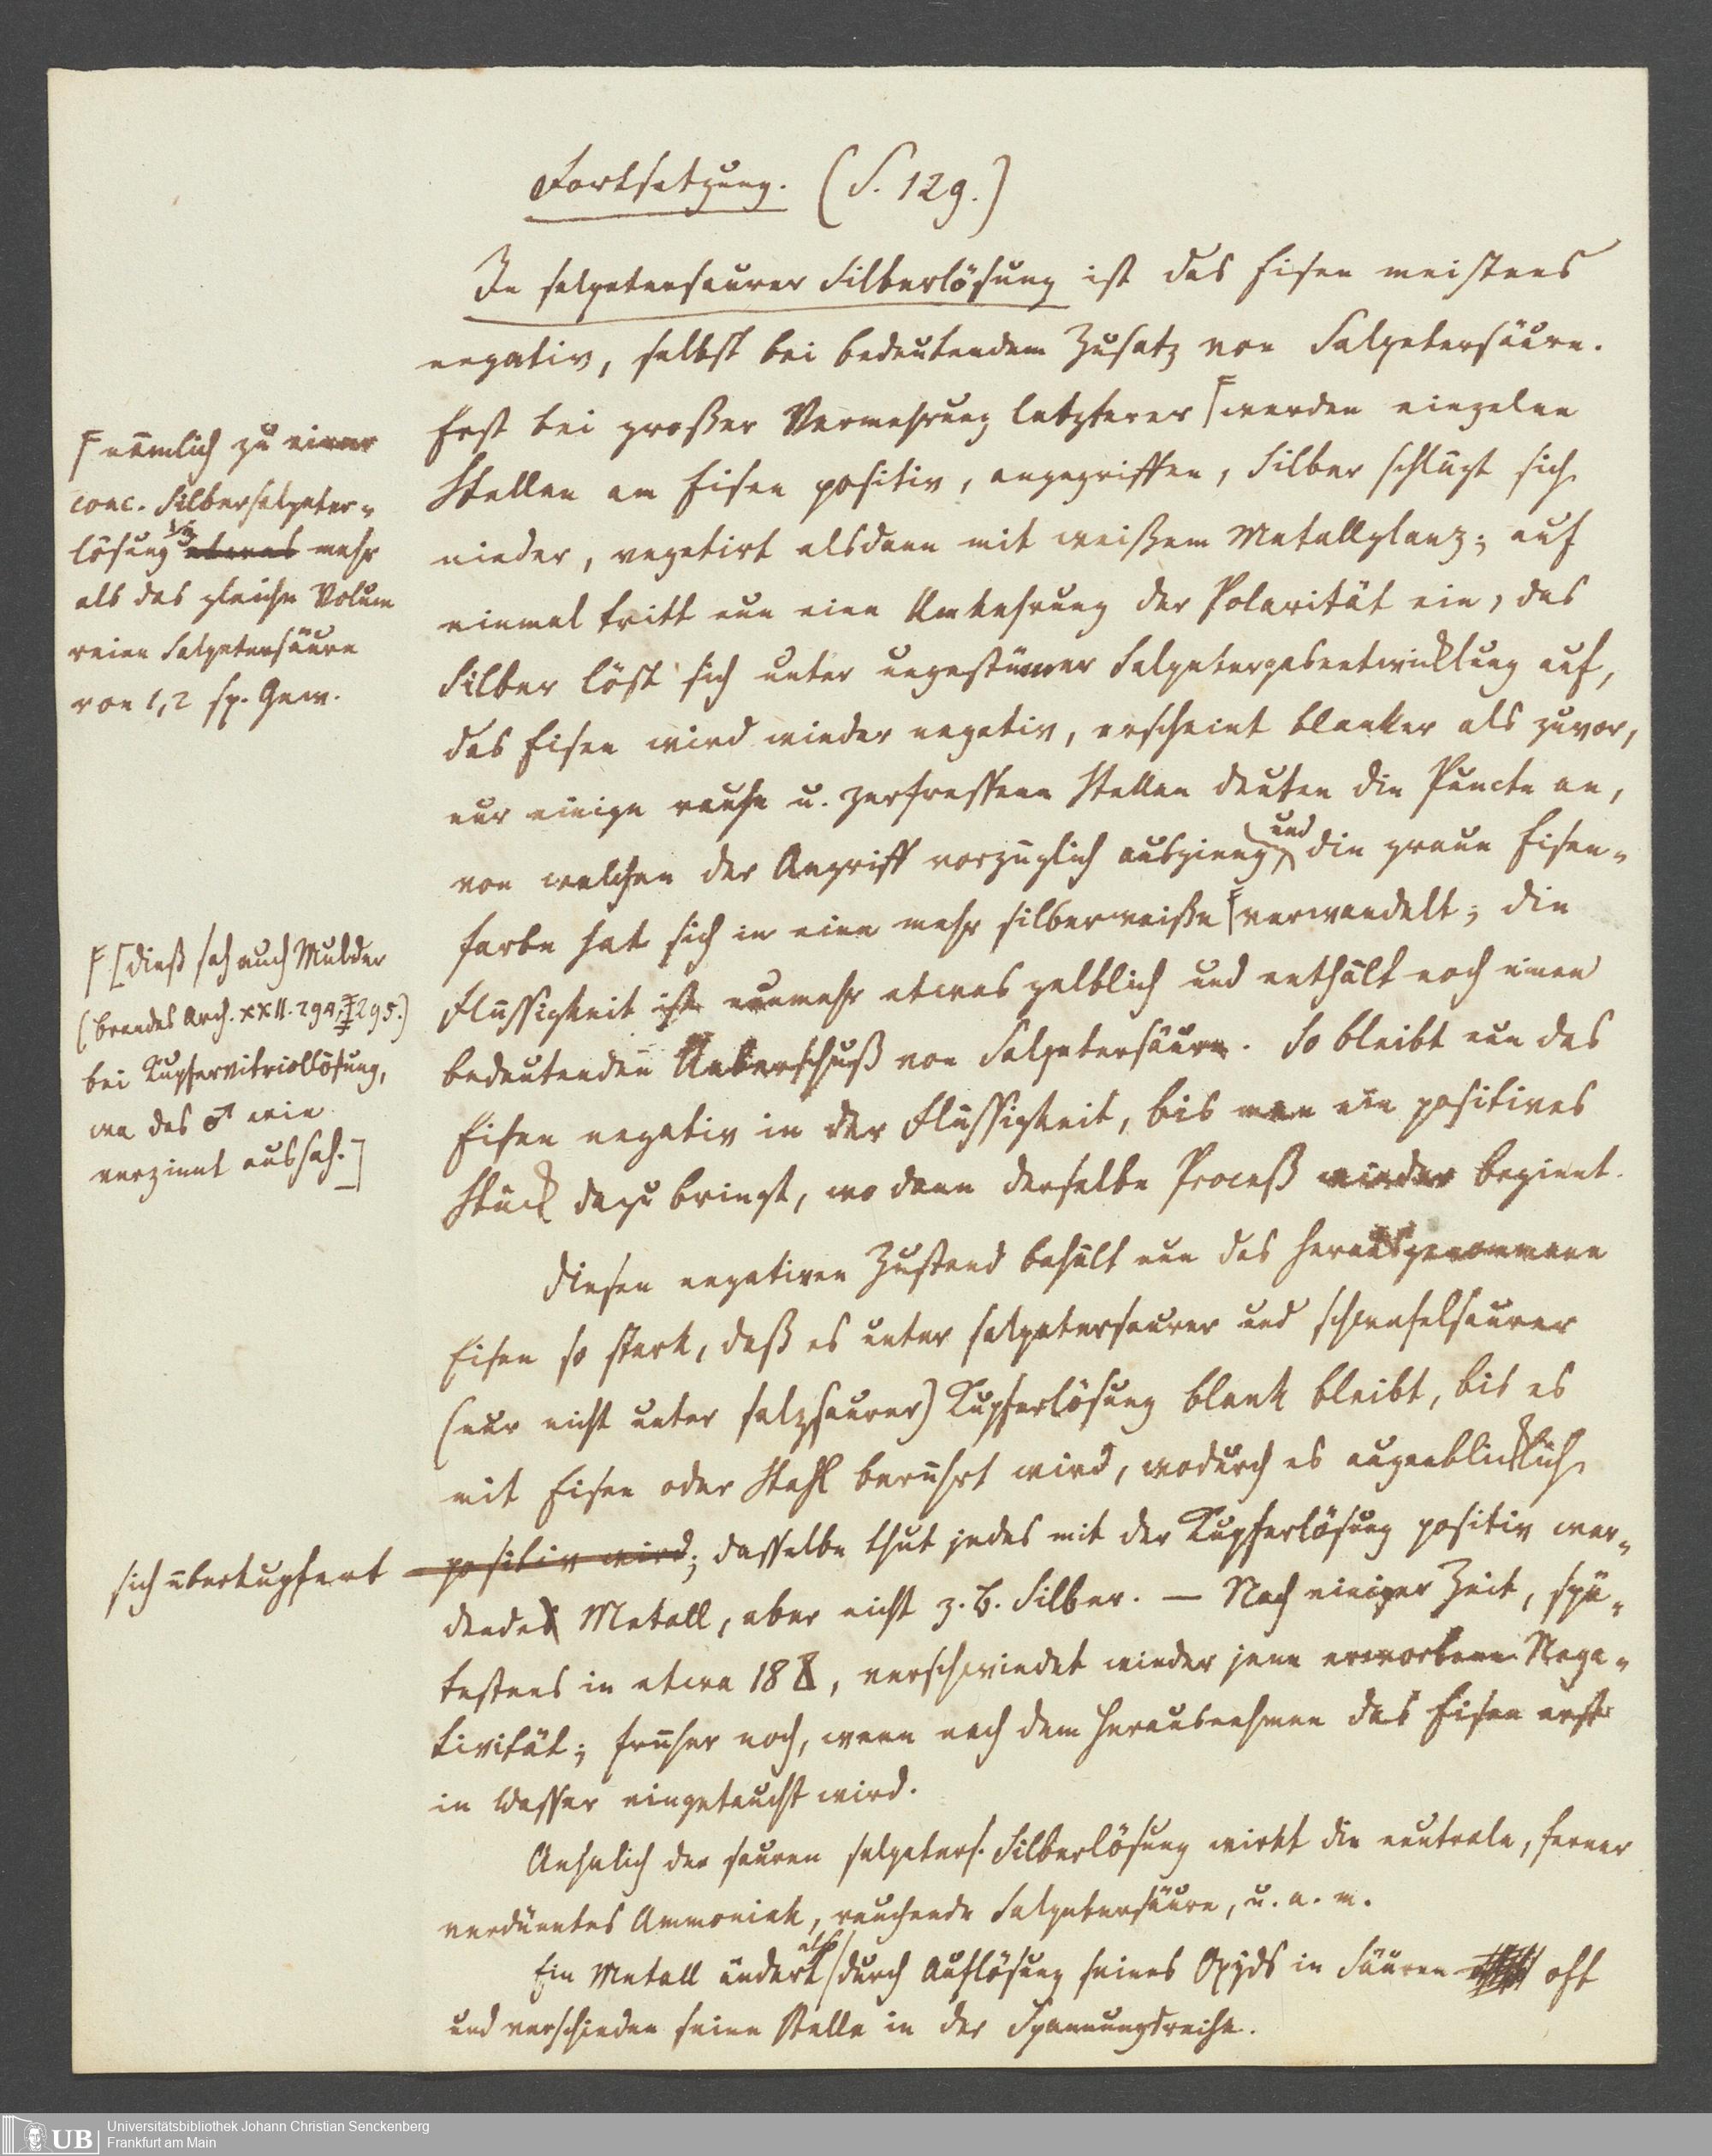 Fortsetzung. (S. 129.)
In salpetersaurer Silberlösung ist das Eisen meistens
negativ, selbst bei bedeutendem Zusatz von Salpetersäure.
Erst bei großer Vermehrung letzterer werden einzelne
Stellen am Eisen positiv, angegriffen, Silber schlägt sich
nieder, vegetirt alsdann mit weißem Metallglanz; auf
einmal tritt nun eine Umkehrung der Polarität ein, das
Silber löst sich unter ungestümer Salpetergasentwicklung auf,
das Eisen wird wieder negativ, erscheint blanker als zuvor,
nur einige rauhe u. zerfressene Stellen deuten die Puncte an,
von welchen der Angriff vorzüglich ausgieng und die graue Eisen-
farbe hat sich in eine mehr silberweiße verwandelt; die
Flüssigkeit ist nunmehr etwas gelblich und enthält noch einen
bedeutenden Ueberschuß von Salpetersäure. So bleibt nun das
Eisen negativ in der Flüssigkeit, bis man ein positives
Stück dazu bringt, wo dann derselbe Proceß wieder beginnt.
Diesen negativen Zustand behält nun das herausgenommene
Eisen so stark, daß es unter salpetersaurer und schwefelsaurer
(nur nicht unter salzsaurer) Kupferlösung blank bleibt, bis es
mit Eisen oder Stahl berührt wird, wodurch es augenblicklich
positiv wird; dasselbe thut jedes mit der Kupferlösung positiv wer-
dende Metall, aber nicht z. B. Silber. — Nach einiger Zeit, spä-
testens in etwa 18, verschwindet wieder jene erworbene Nega-
tivität; früher noch, wenn nach dem Herausnehmen das Eisen erst
in Wasser eingetaucht wird.
Aehnlich der sauren salpeters. Silberlösung wirkt die neutrale, ferner
verdünntes Ammoniak, rauchende Salpetersäure, u. a. m.
Ein Metall ändert also durch Auflösung seines Oxyds in Säuren oft
und verschieden seine Stelle in der Spannungsreihe.
F nämlich zu einer
conc. Silbersalpeter-
lösung 1/3 etwas mehr
als das gleiche Volum
reine Salpetersäure
von 1,2 sp. Gew.
F [dieß sah auch Mulder
(Brandes Arch. XXII. 294, 295.)
bei Kupfervitriollösung,
wo das ♂ wie
verzinnt aussah.]
sich überkupfert
UB Universitätsbibliothek Johann Christian Senckenberg
Frankfurt am Main